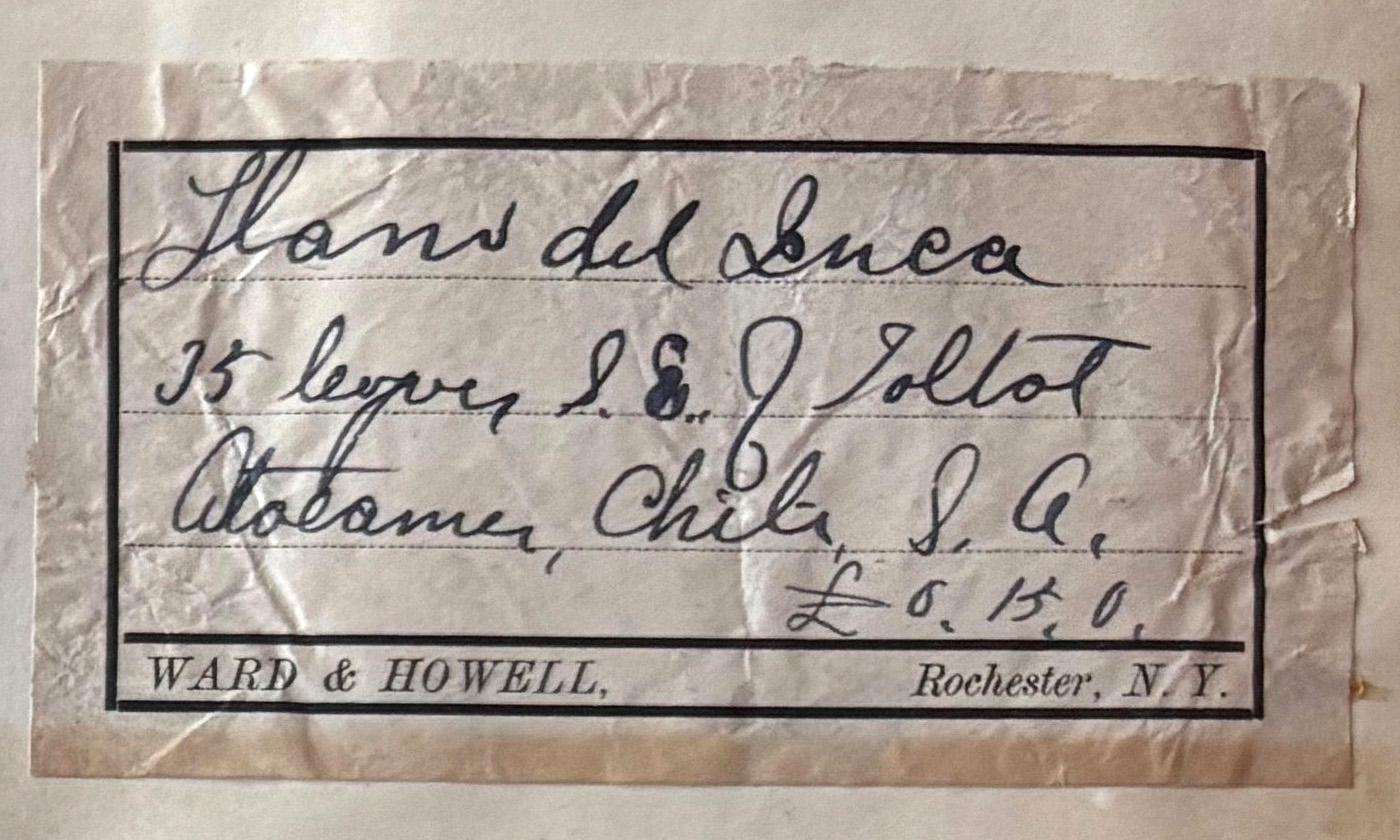 Llano del Inca
35 leagues S. E. of Taltal
Atacama, Chili, S. A.
£ 0. 15. 0.
WARD & HOWELL, Rochester, N. Y.